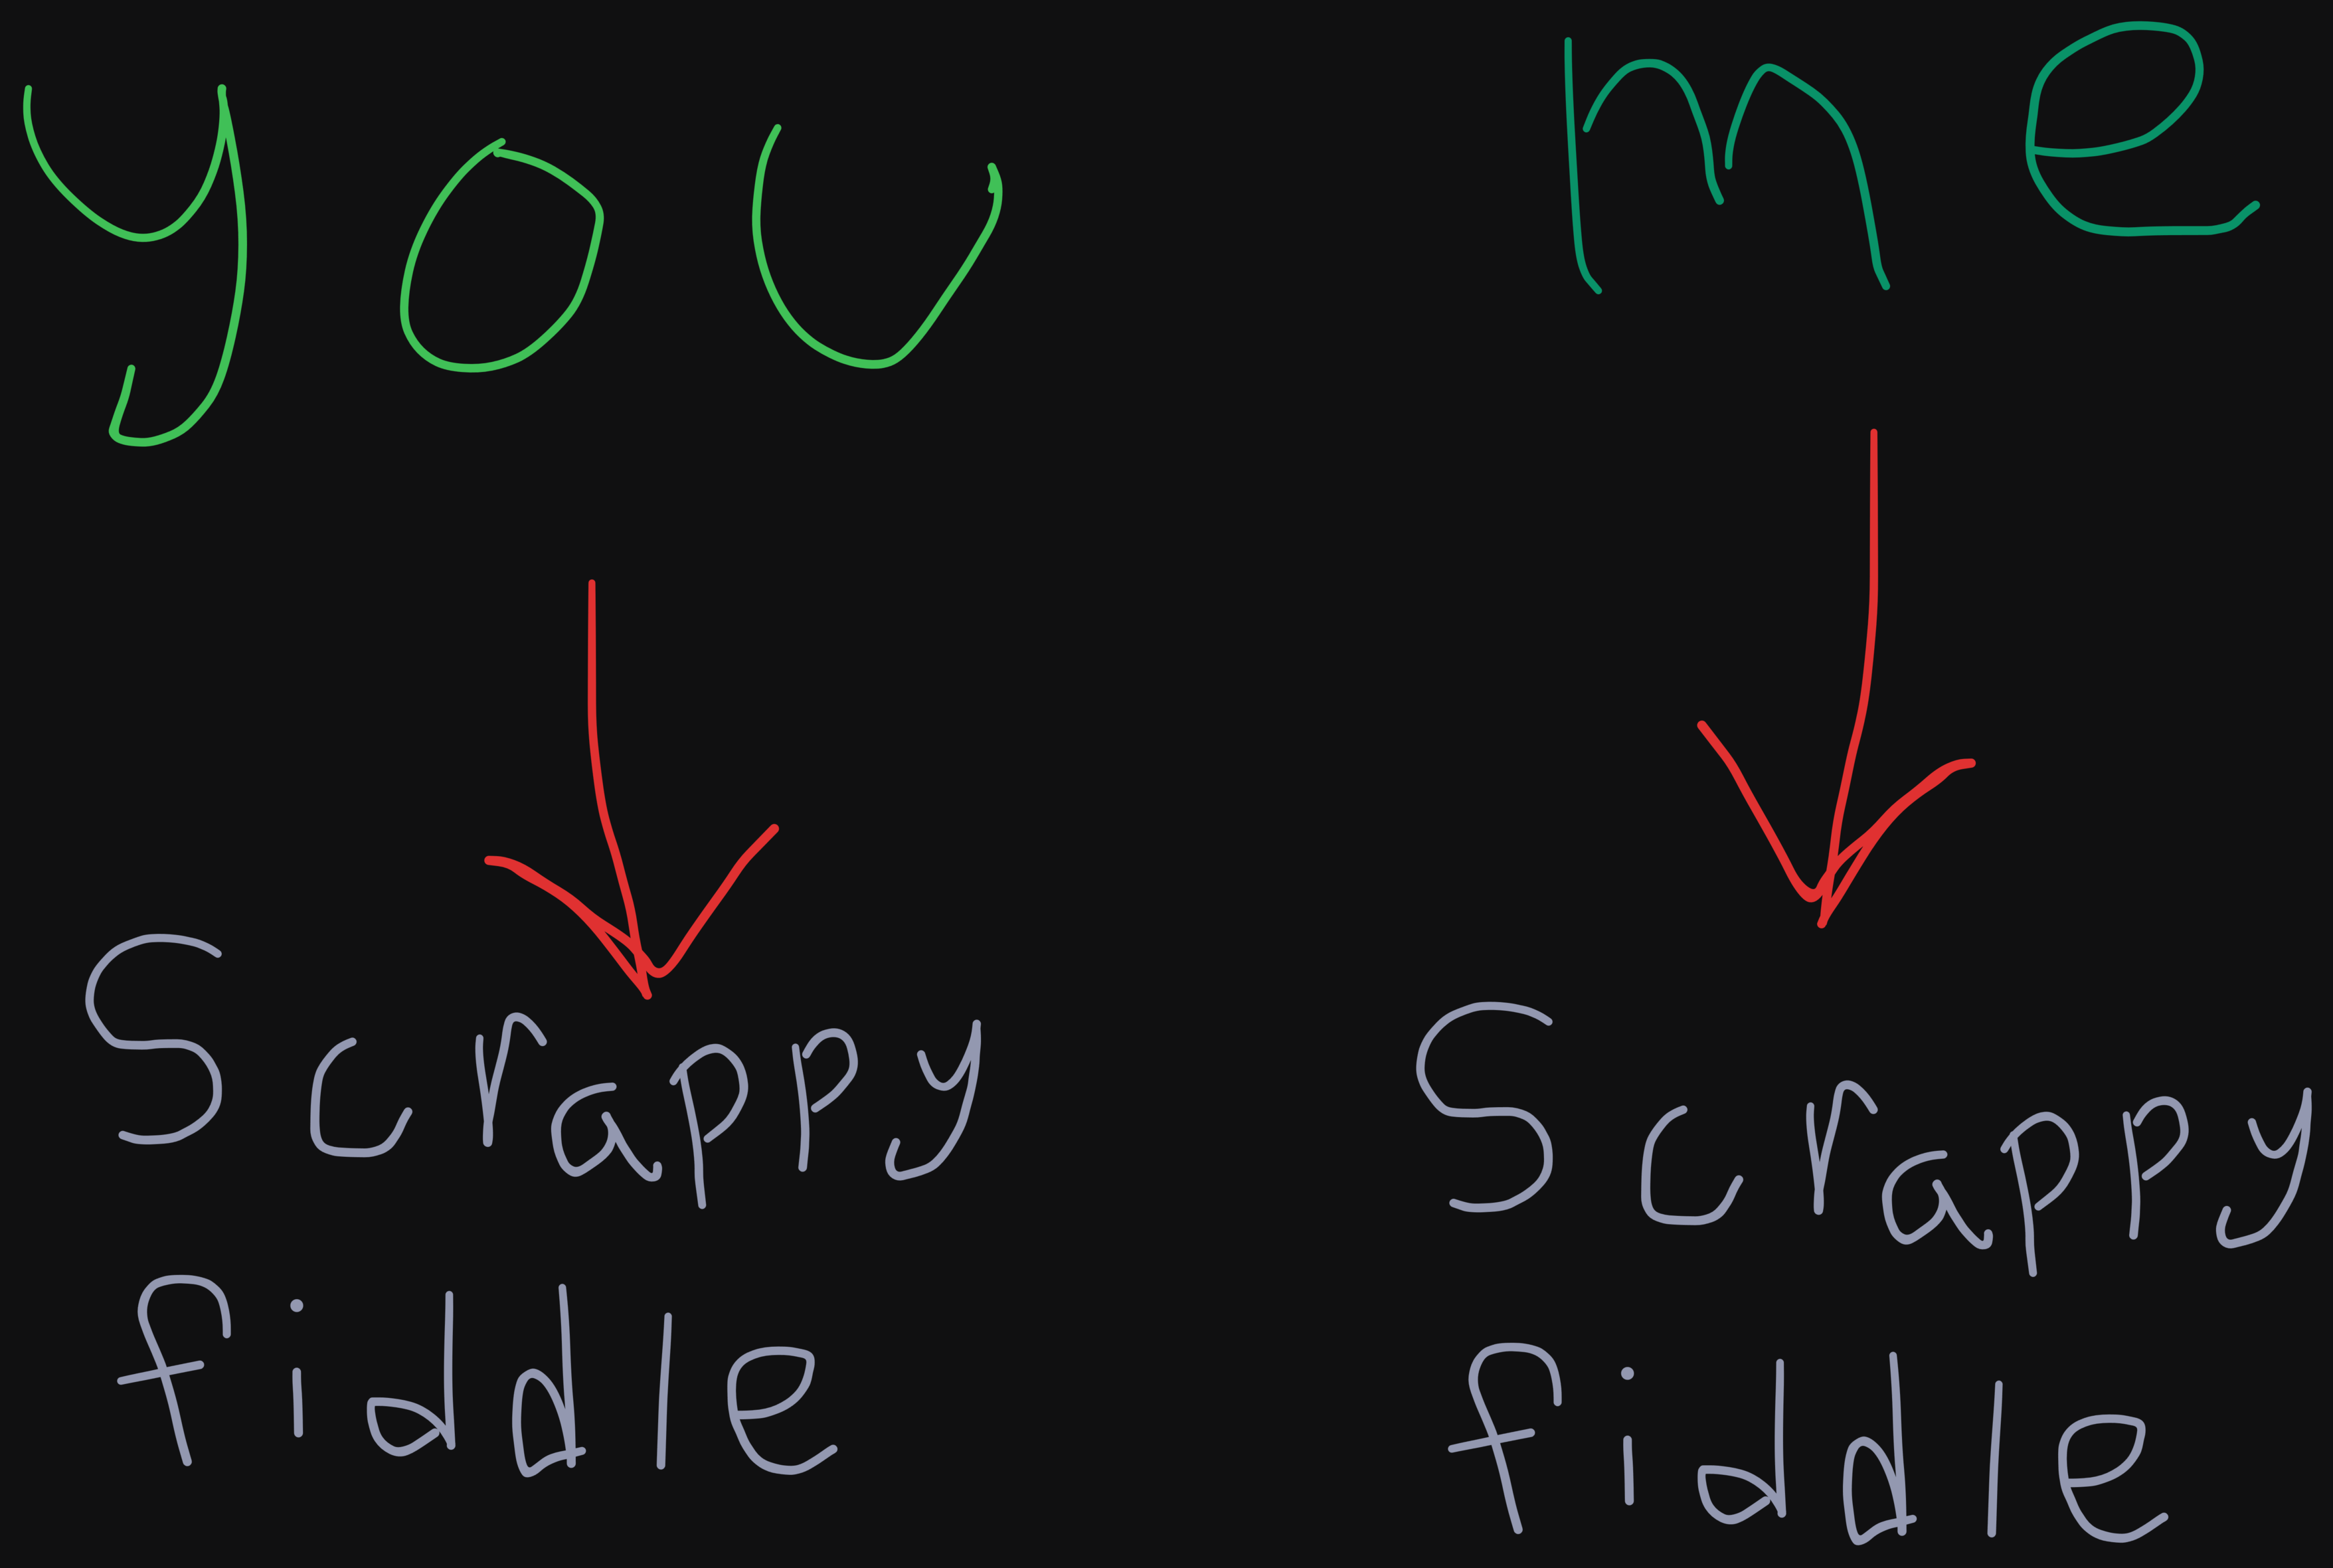 you
me
Scrappy
fiddle
Scrappy
fiddle